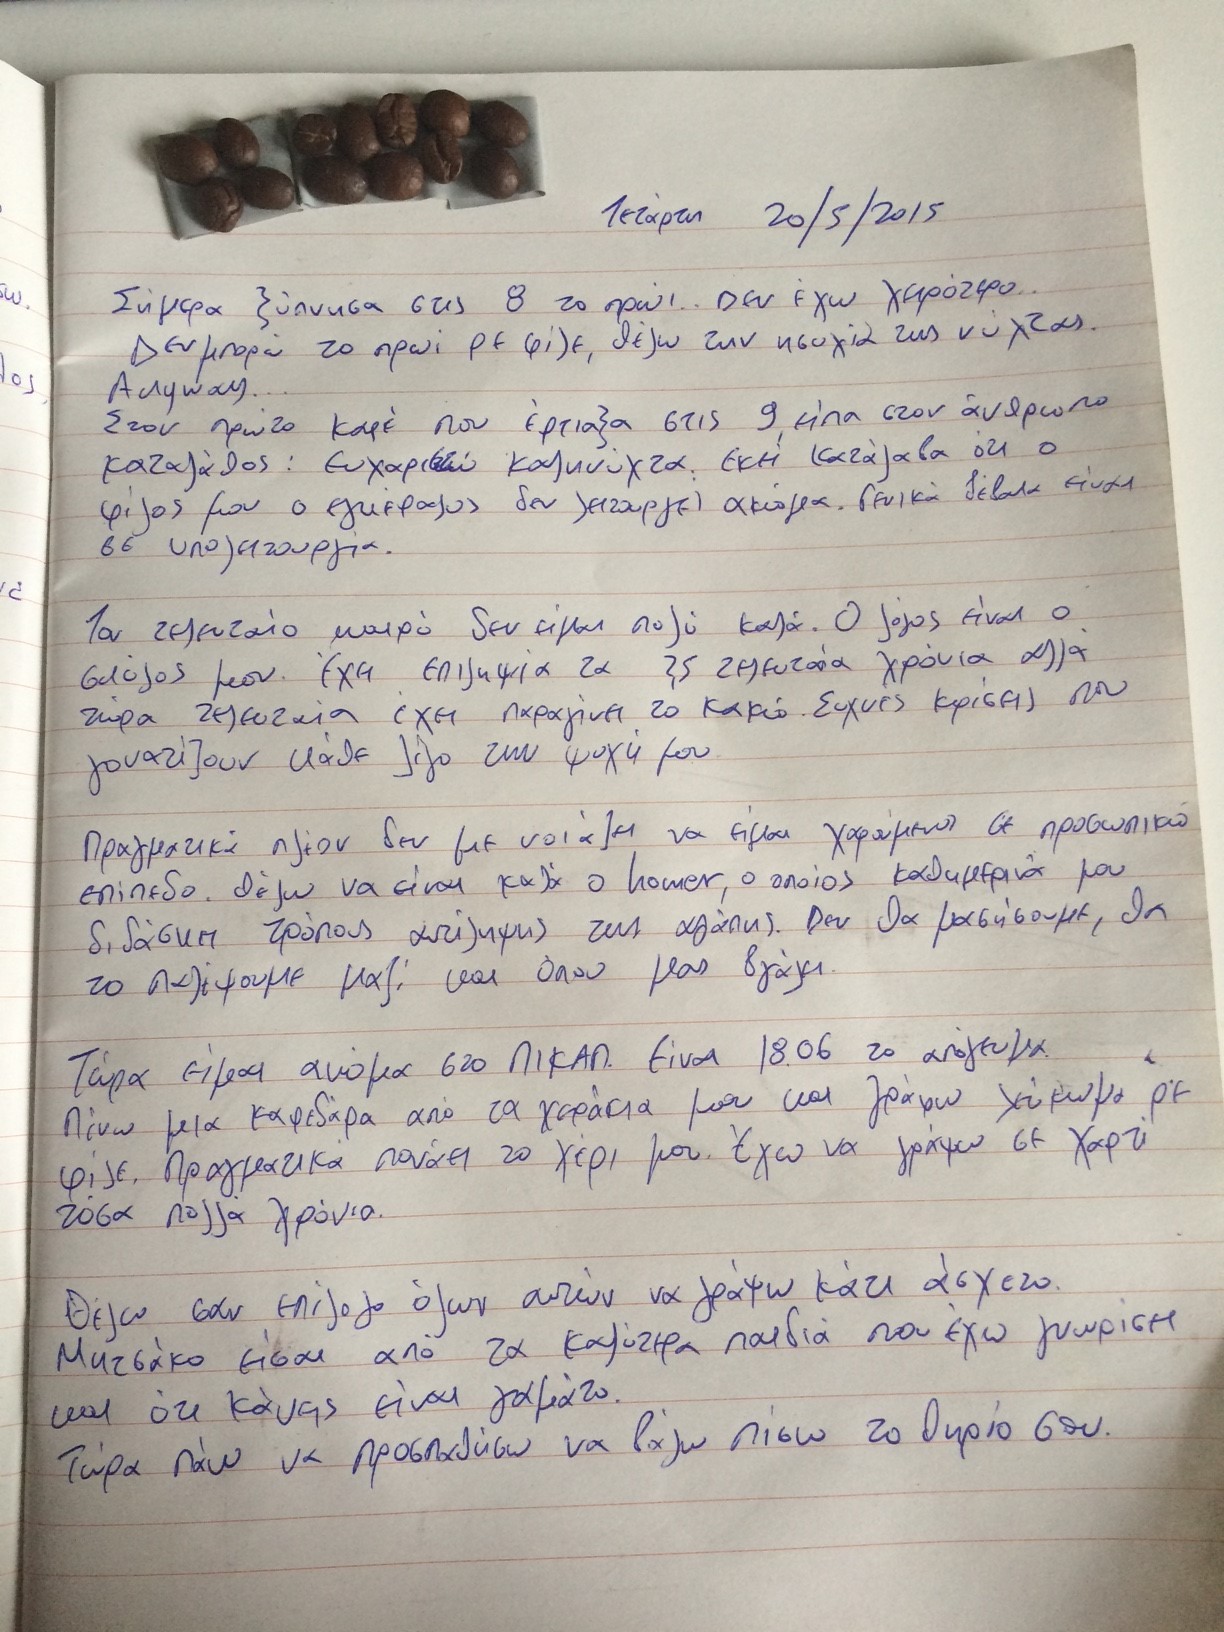 Τετάρτη 20/5/2015
Σήμερα ξύπνησα στις 8 το πρωί.. Δεν έχω χειρότερο..
Δεν μπορώ το πρωί ρε φίλε, θέλω την ησυχία της νύχτας.
Στον πρώτο καφέ που έφτιαξα στις 9, είπα στον άνθρωπο
καταλάθος: ευχαριστώ καληνύχτα. Εκεί κατάλαβα ότι ο
φίλος μου ο εγκέφαλος δεν λειτουργεί ακόμα. Γενικά βέβαια είναι
σε υπολειτουργία.
Τον τελευταίο καιρό δεν είμαι πολύ καλά. Ο λόγος είναι ο
σκύλος μου. Έχει επιληψία τα 2,5 τελευταία χρόνια αλλά
τώρα τελευταία έχει παραγίνει το κακό. Συχνές κρίσεις που
γονατίζουν κάθε λίγο την ψυχή μου
Πραγματικά πλέον δεν με νοιάζει να είμαι χαρούμενος σε προσωπικό
επίπεδο. Θέλω να είναι καλά ο homer, ο οποίος καθημερινά μου
διδάσκει τρόπους αντίληψης της αγάπης. Δεν θα μασήσουμε, θα
το παλέψουμε μαζί και όπου μας βγάλει.
Τώρα είμαι ακόμα στο ΠΙΚΑΠ. Είναι 18.06 το απόγευμα.
Πίνω μια καφεδάρα από τα χεράκια μου και γράφω χύκωμα ρε
φίλε. Πραγματικά πονάει το χέρι μου. Έχω να γράψω σε χαρτί
τόσα πολλά χρόνια.
Θέλω σαν επίλογο όλων αυτών να γράψω κάτι άσχετο.
Μητσάκο είσαι από τα καλύτερα παιδιά που έχω γνωρίσει
και ότι κάνεις είναι γαμάτο.
Τώρα πάω να προσπαθήσω να βάλω πίσω το θηρίο σου.